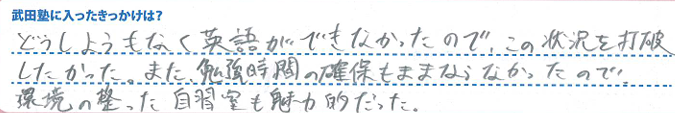 武田塾に入ったきっかけは?
どうしようもなく英語ができなかったので、この状況を打破
したかった。また、勉強時間の確保もままならなかったので、
環境の整った自習室も魅力的だった。